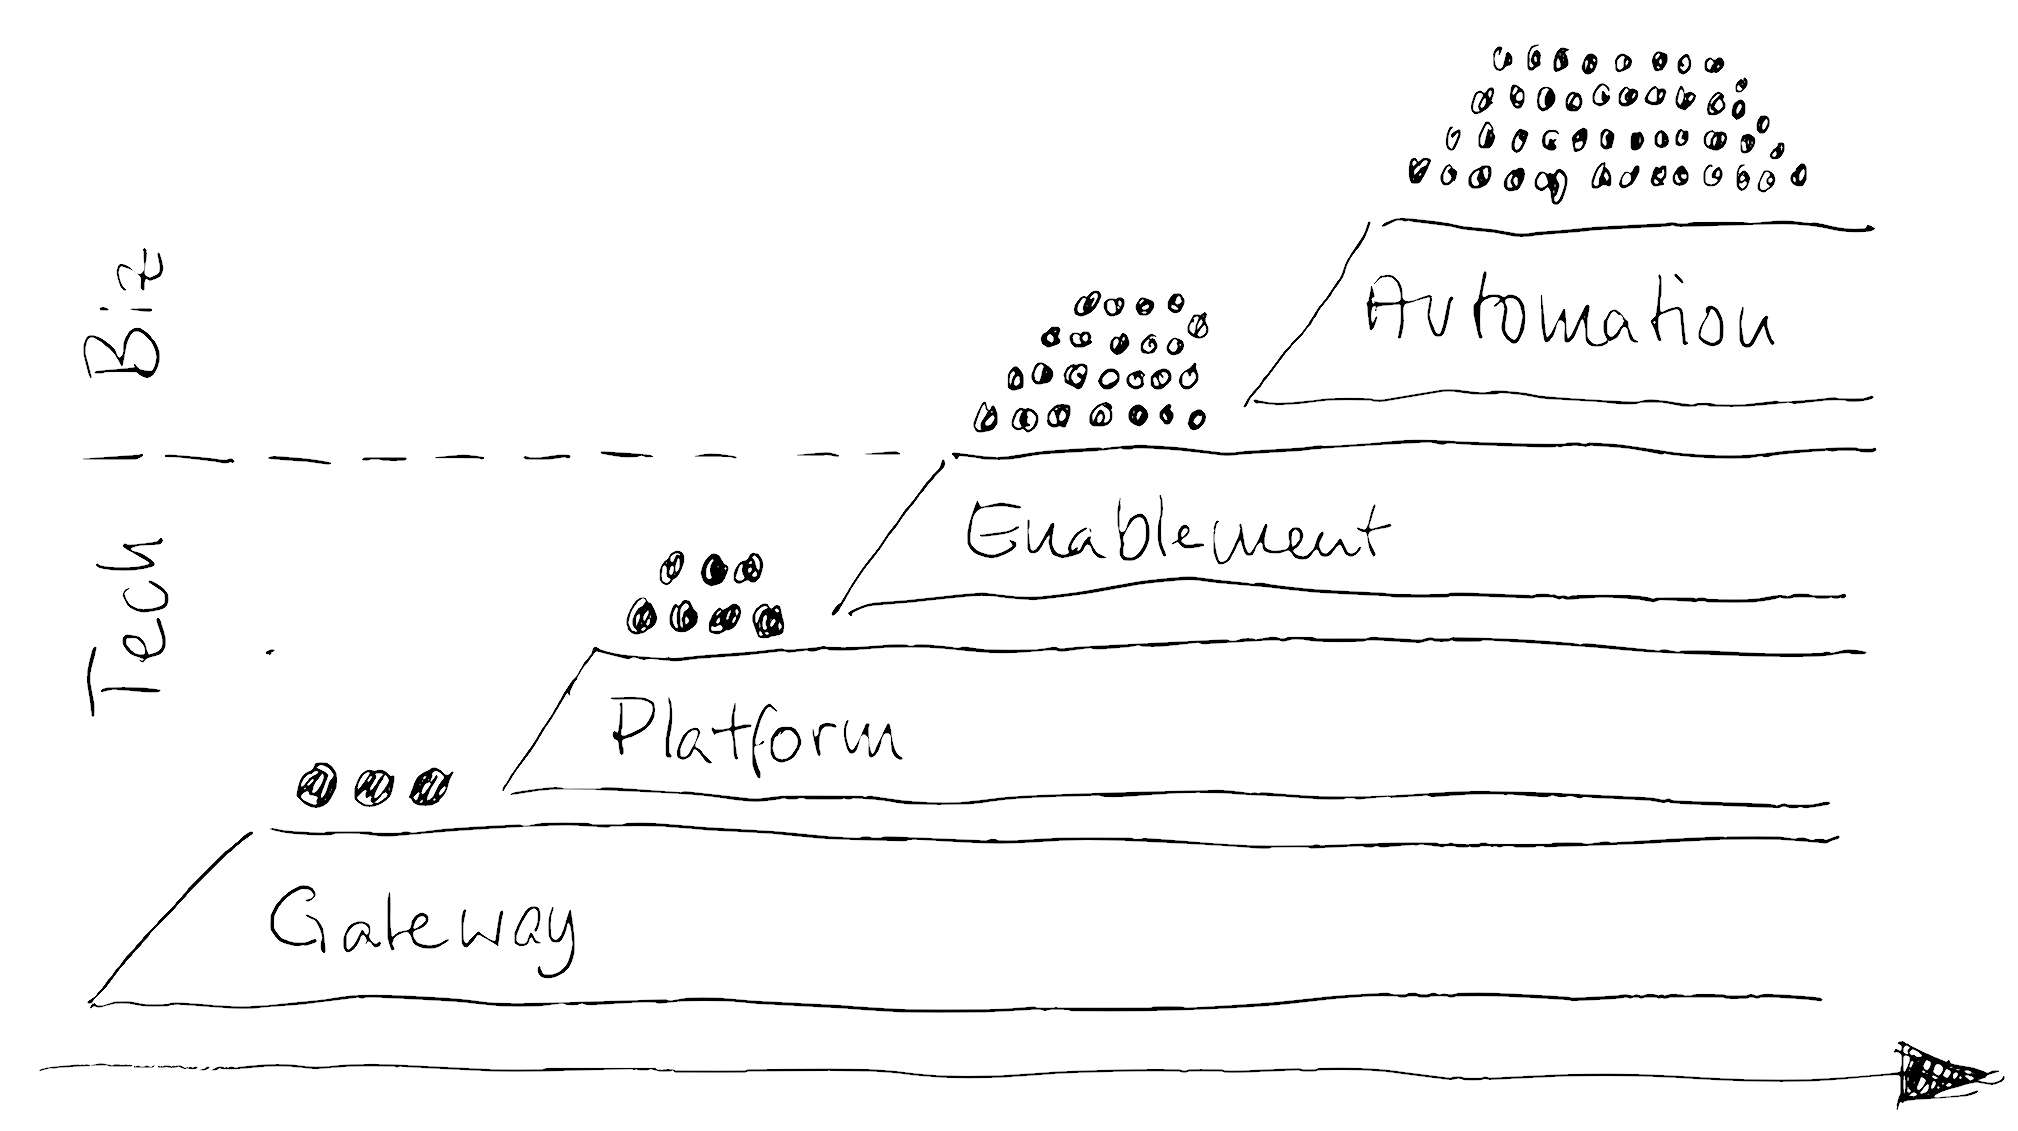 Biz
Automation
Enablement
Tech
Platform
Gateway